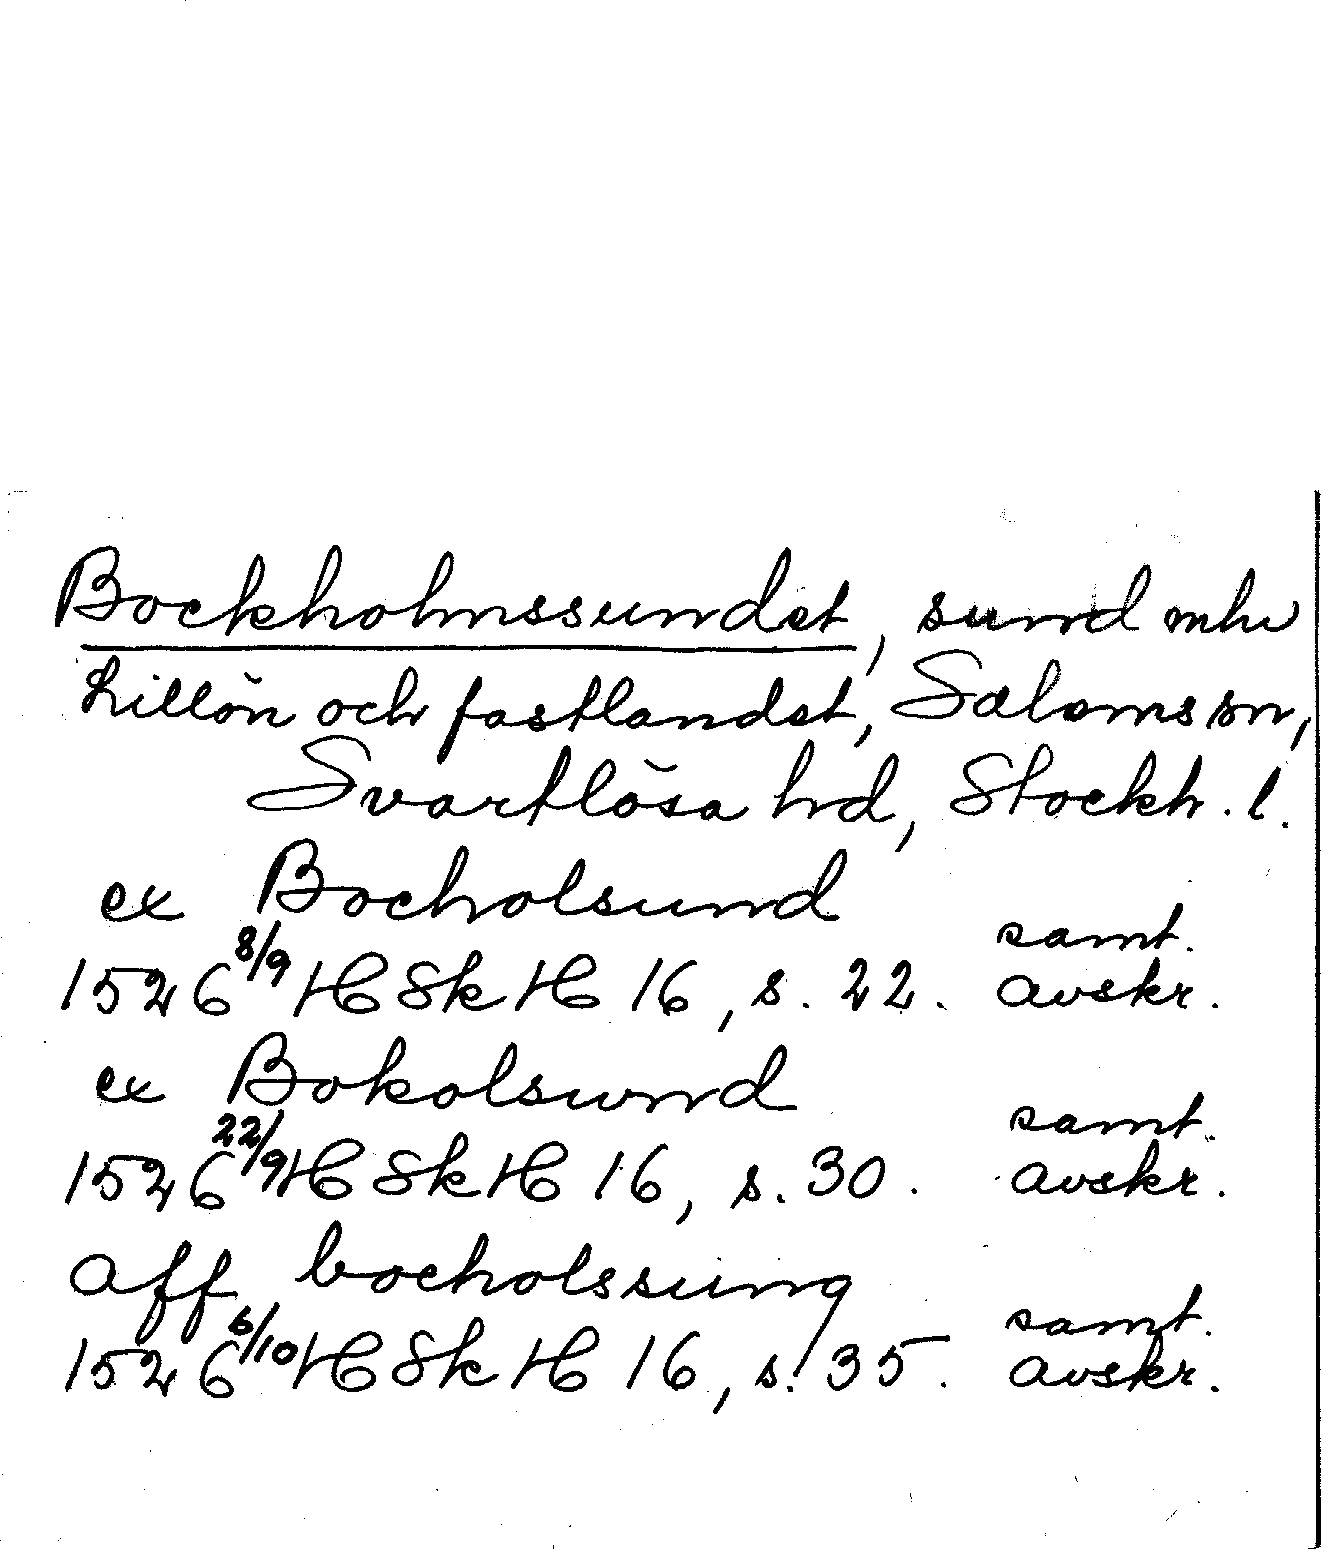 Bockholmssundet, sund mlu
Lillön och fastlandet, Salems sn,
Svartlösa hd, Stockh. l.
ex Bocholsund
1526 8/9 HSkH 16, s. 22. samt. avskr.
ex Bokolsund
1526 22/9 HSkH 16, s. 30. samt. avskr.
aff bocholssung
1526 6/10 HSkH 16, s. 35. samt. avskr.